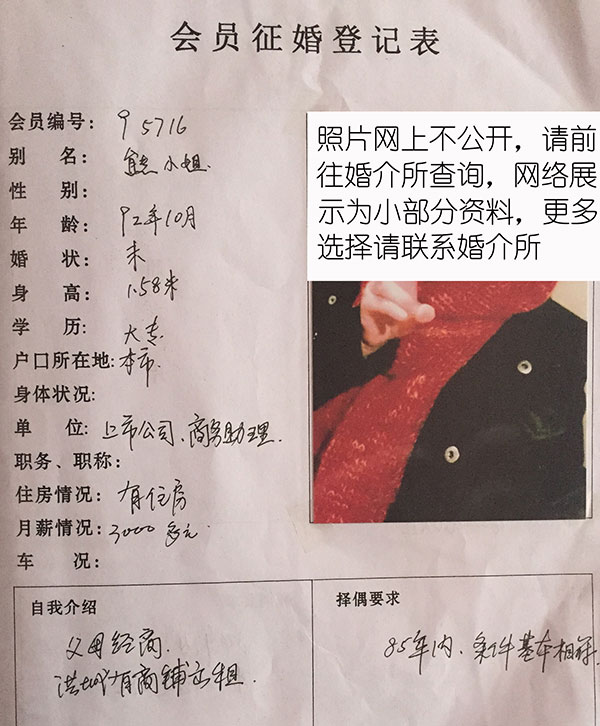 会员征婚登记表
会员编号: 95716
别 名: 熊小姐
性 别:
年 龄: 92年10月
婚 状: 未
身 高: 1.58米
学 历: 大专
户口所在地: 本市
身体状况:
单 位: 上市公司、商务助理.
职务、职称:
住房情况: 有住房
月薪情况: 3000多元
车 况:
照片网上不公开，请前
往婚介所查询，网络展
示为小部分资料，更多
选择请联系婚介所
自我介绍
父母经商.
洪城有商铺出租
择偶要求
85年内、条件基本相符